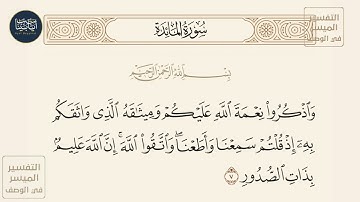 سُورَةُ المَائِدَةِ
التفسير
الميسر
في الوصف
بِسْمِ اللَّهِ الرَّحْمَٰنِ الرَّحِيمِ
وَاذْكُرُوا نِعْمَةَ اللَّهِ عَلَيْكُمْ وَمِيثَاقَهُ الَّذِي وَاثَقَكُم
بِهِ إِذْ قُلْتُمْ سَمِعْنَا وَأَطَعْنَا ۖ وَاتَّقُوا اللَّهَ ۚ إِنَّ اللَّهَ عَلِيمٌ
بِذَاتِ الصُّدُورِ ٧
التفسير
الميسر
في الوصف